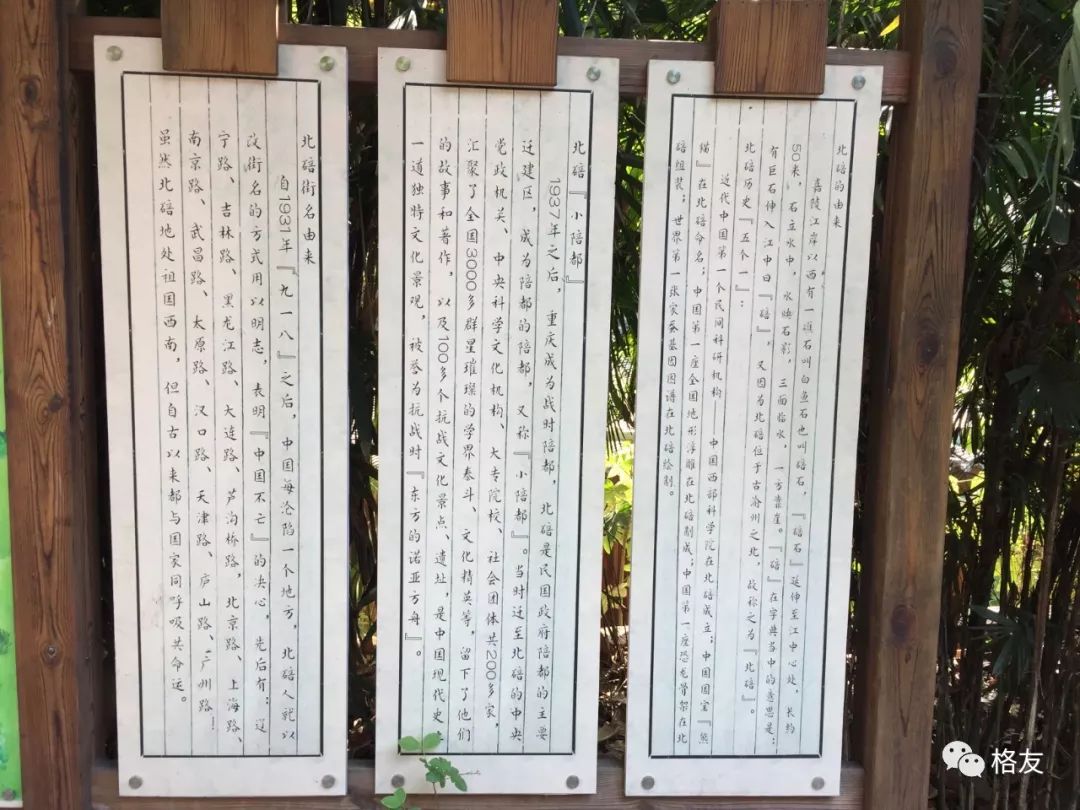 北碚的由来
嘉陵江岸以西有一道石叫白鱼石也叫碚石，『碚石』延伸至江中心处，长约
50米，石立水中，水映石影，三面临水，一方靠崖。『碚』在字典当中的意思是：
有巨石伸入江中曰『碚』，又因为北碚位于古渝州之北，故称之为『北碚』。
北碚历史『五个一』：
近代中国第一个民间科研机构——中国西部科学院在北碚成立；中国国宝『熊
猫』在北碚命名；中国第一座全国地形浮雕在北碚制成；中国第一座恐龙骨架在北
碚组装；世界第一张家蚕基因图谱在北碚绘制。
北碚『小陪都』
1937年之后，重庆成为战时陪都，北碚是民国政府陪都的主要
迁建区，成为陪都的陪都，又称『小陪都』。当时迁至北碚的中央
党政机关、中央科学文化机构、大专院校、社会团体共200多家，
汇聚了全国3000多群星璀璨的学界泰斗、文化精英等，留下了他们
的故事和著作，以及100多个抗战文化景点、遗址，是中国现代史上
一道独特文化景观，被誉为抗战时『东方的诺亚方舟』。
北碚街名由来
自1931年『九一八』之后，中国每沦陷一个地方，北碚人就以
改街名的方式用以明志，表明『中国不亡』的决心，先后有：辽
宁路、吉林路、黑龙江路、大连路、芦沟桥路，北京路、上海路、
南京路、武昌路、太原路、汉口路、天津路、庐山路、广州路…
虽然北碚地处祖国西南，但自古以来都与国家同呼吸共命运。
格友